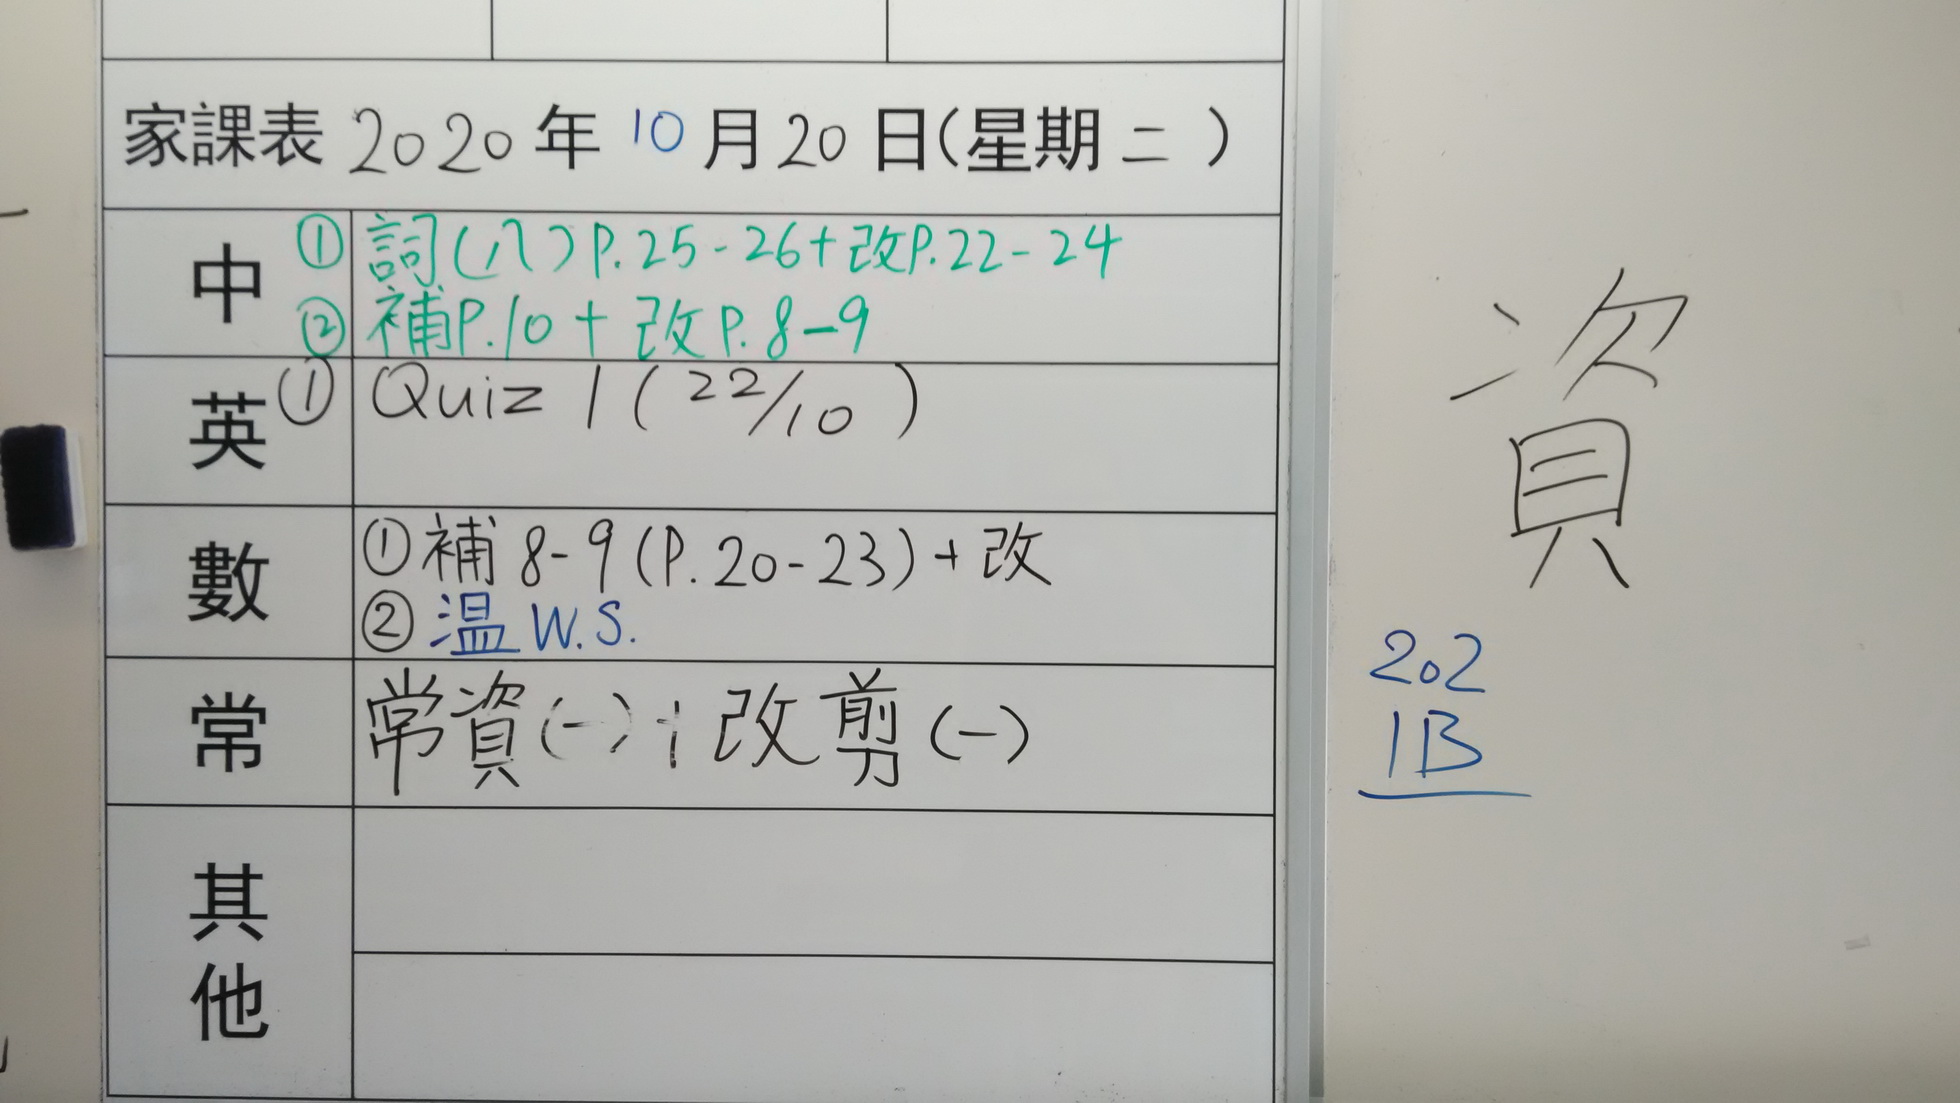 家課表 2020 年 10 月 20 日(星期 二 )
中 ① 詞(八)P.25-26+改P.22-24
② 補P.10+改P.8-9
英 ① Quiz 1 (22/10)
數 ① 補 8-9 (P.20-23)+改
② 温 W.S.
常 常資(一)+改剪(一)
其他
資
202
1B